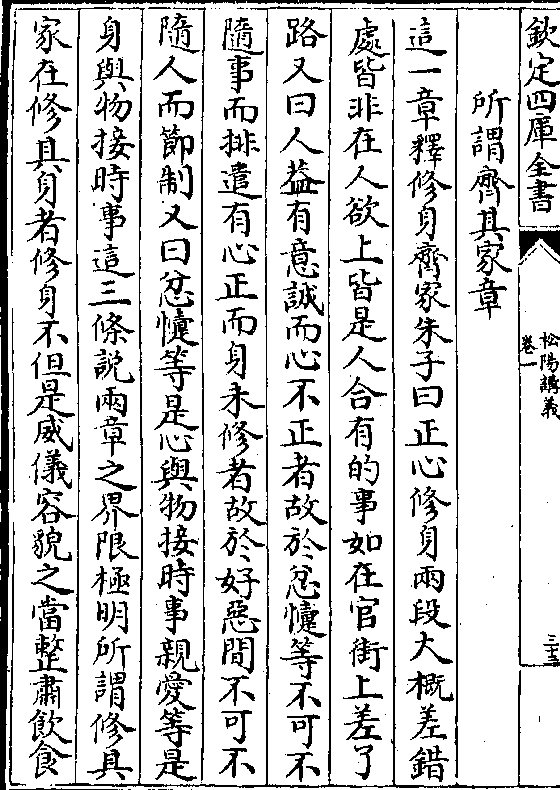 欽定四庫全書
松陽講義
卷一
三十五
所謂齊其家章
這一章釋修身齊家朱子曰正心修身兩段大概差錯
處皆非在人欲上皆是人合有的事如在官街上差了
路又曰人葢有意誠而心不正者故於忿懥等不可不
隨事而排遣有心正而身未修者故於好惡間不可不
隨人而節制又曰忿懥等是心與物接時事親愛等是
身與物接時事這三條說兩章之界限極明所謂修其
家在修其身者修身不但是威儀容貌之當整肅飲食